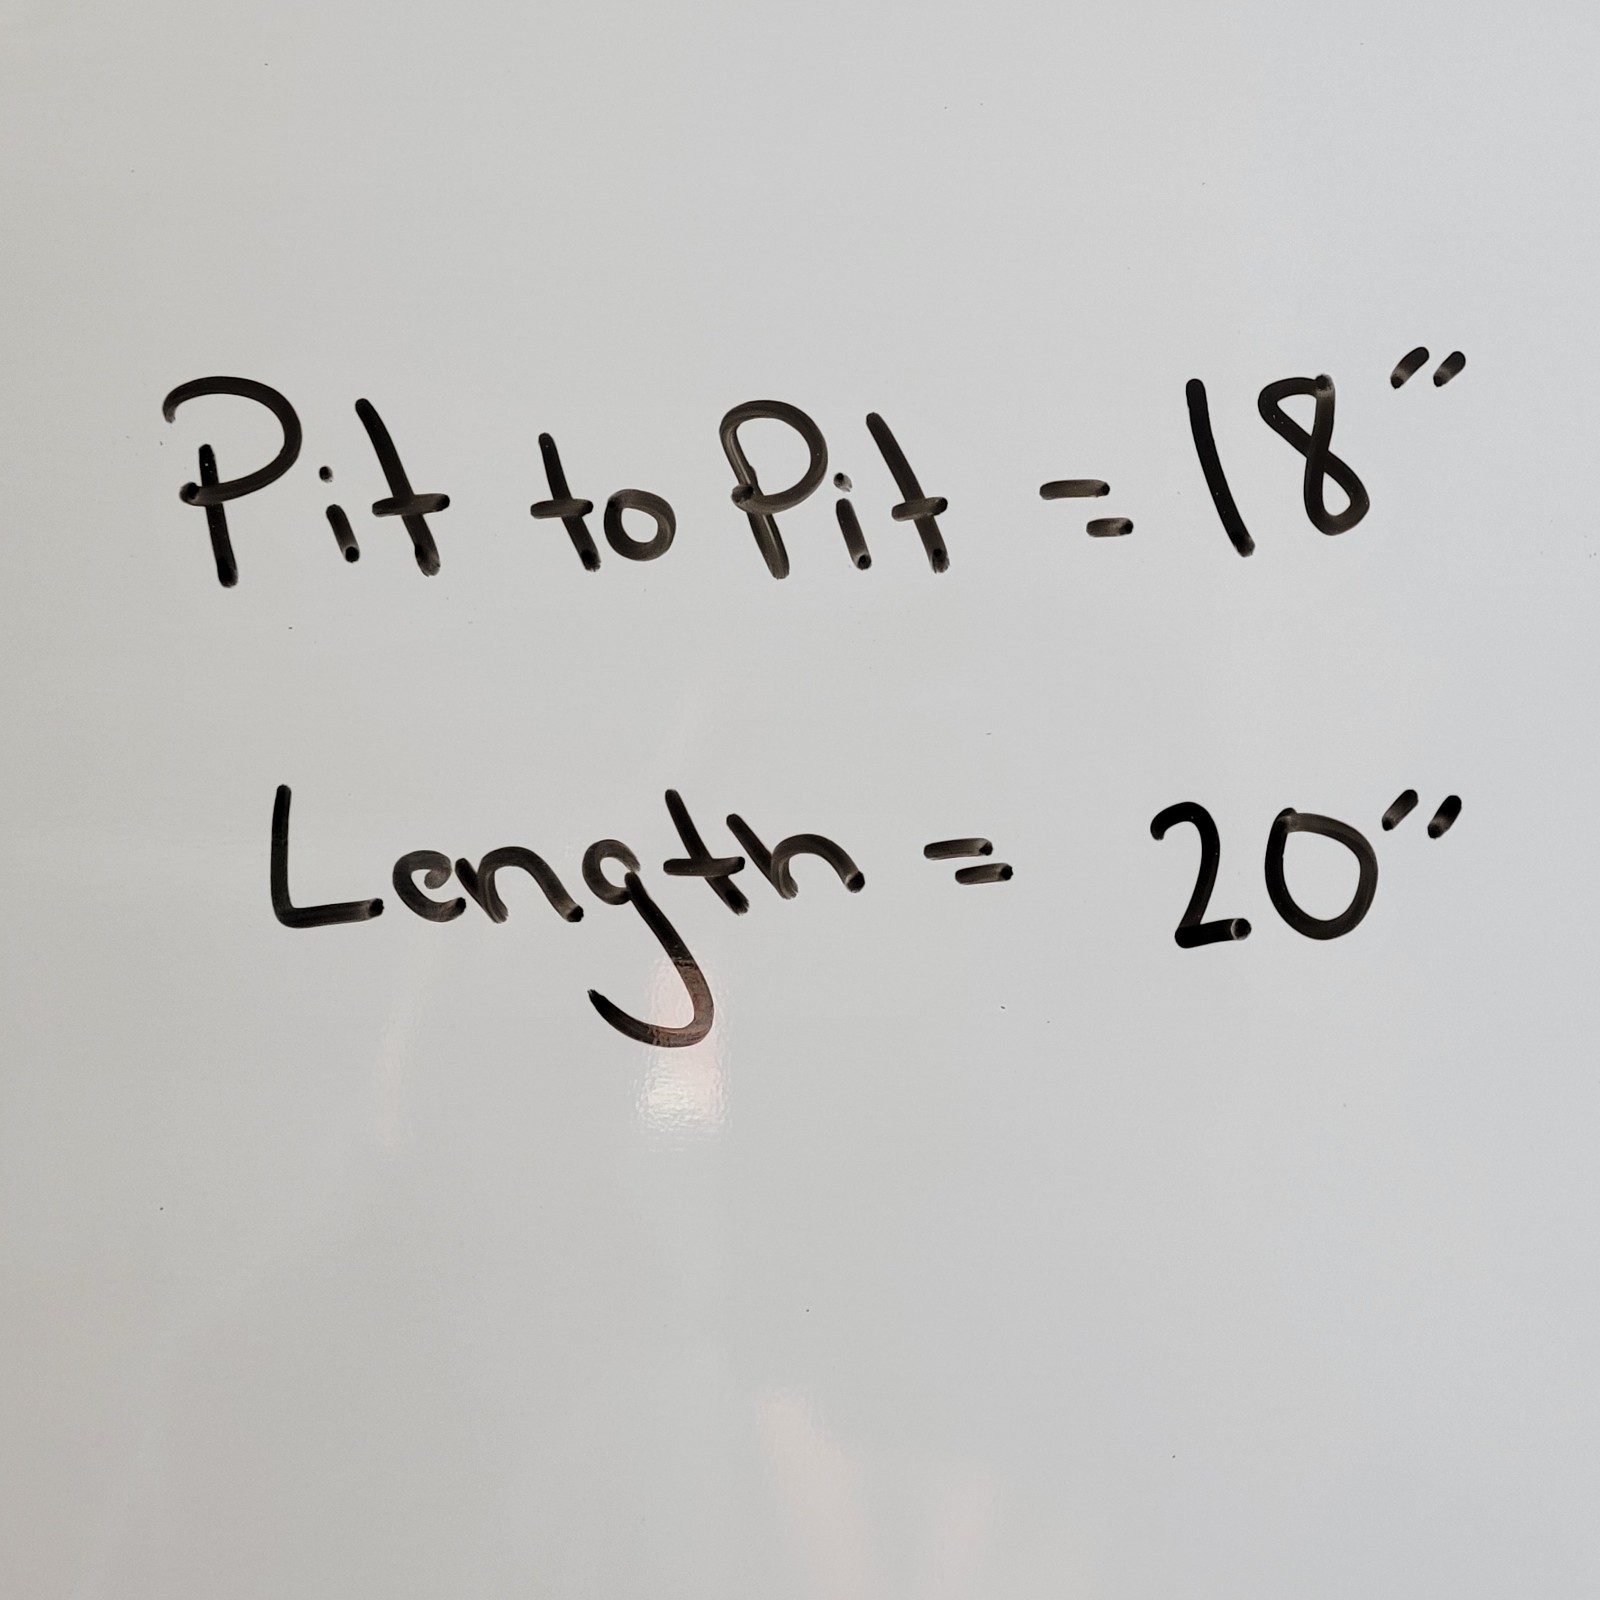 Pit to Pit = 18"
Length = 20"